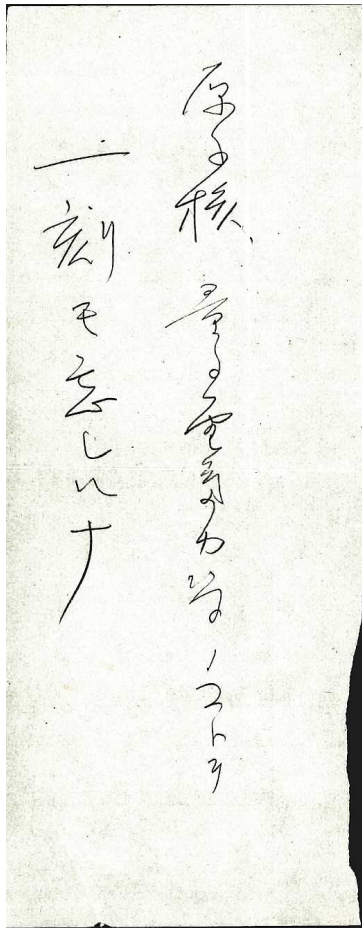 原子核、量子電気力学ノコトヲ
一刻モ忘レルナ